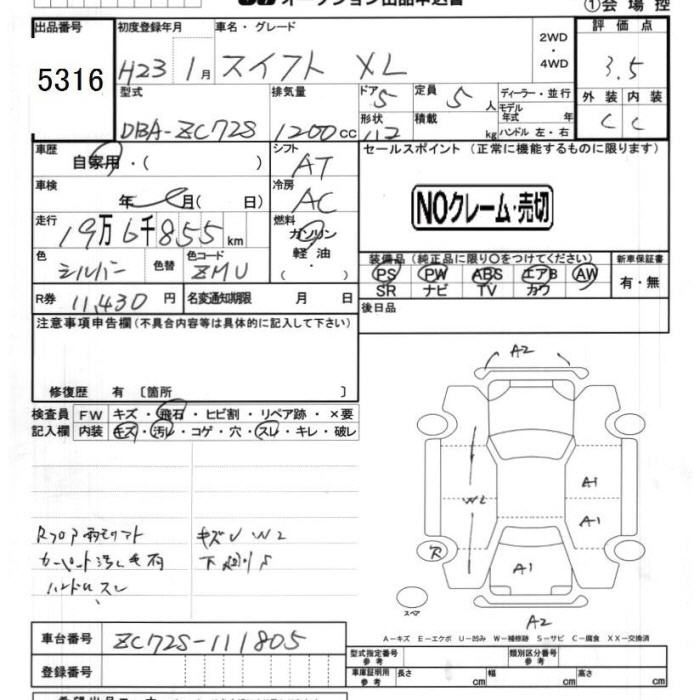 オークション出品申込書
①会場控
出品番号
5316
初度登録年月
H23 1月
車名・グレード
スイフト XL
2WD
・
4WD
評価点
3.5
外装 内装
C C
型式
DBA-ZC72S
排気量
1200cc
ドア 5
形状
定員 5 人
積載 kg
ディーラー・並行
モデル
年式 年
ハンドル 左・右
車歴
自家用・( )
シフト
AT
セールスポイント(正常に機能するものに限ります)
NOクレーム・売切
車検
年 月( 日)
冷房
AC
走行
19万6千855km
燃料
ガソリン
軽油
( ・ )
色
シルバー
色替
色コード
ZMU
装備品(純正品に限り〇をつけてください)
新車保証書
PS PW ABS エアB AW
SR ナビ TV カワ
有・無
R券 11,430 円
名変通知期限 月 日
後日品
注意事項申告欄(不具合内容等は具体的に記入して下さい)
修復歴 有〔箇所 〕
検査員
記入欄
FW キズ・飛石・ヒビ割・リペア跡・×要
内装 キズ・汚レ・コゲ・穴・スレ・キレ・破レ
カーペット汚し毛有
ハンドルスレ
キズU W2
A2
W2
A1
A1
A1
A2
スペア
A-キズ E-エクボ U-凹み W-補修跡 S-サビ C-腐食 XX-交換済
車台番号 ZC72S-111805
登録番号
型式指定番号
参考
類別区分番号
参考
車庫証明用
参考
長さ cm 幅 cm 高さ cm